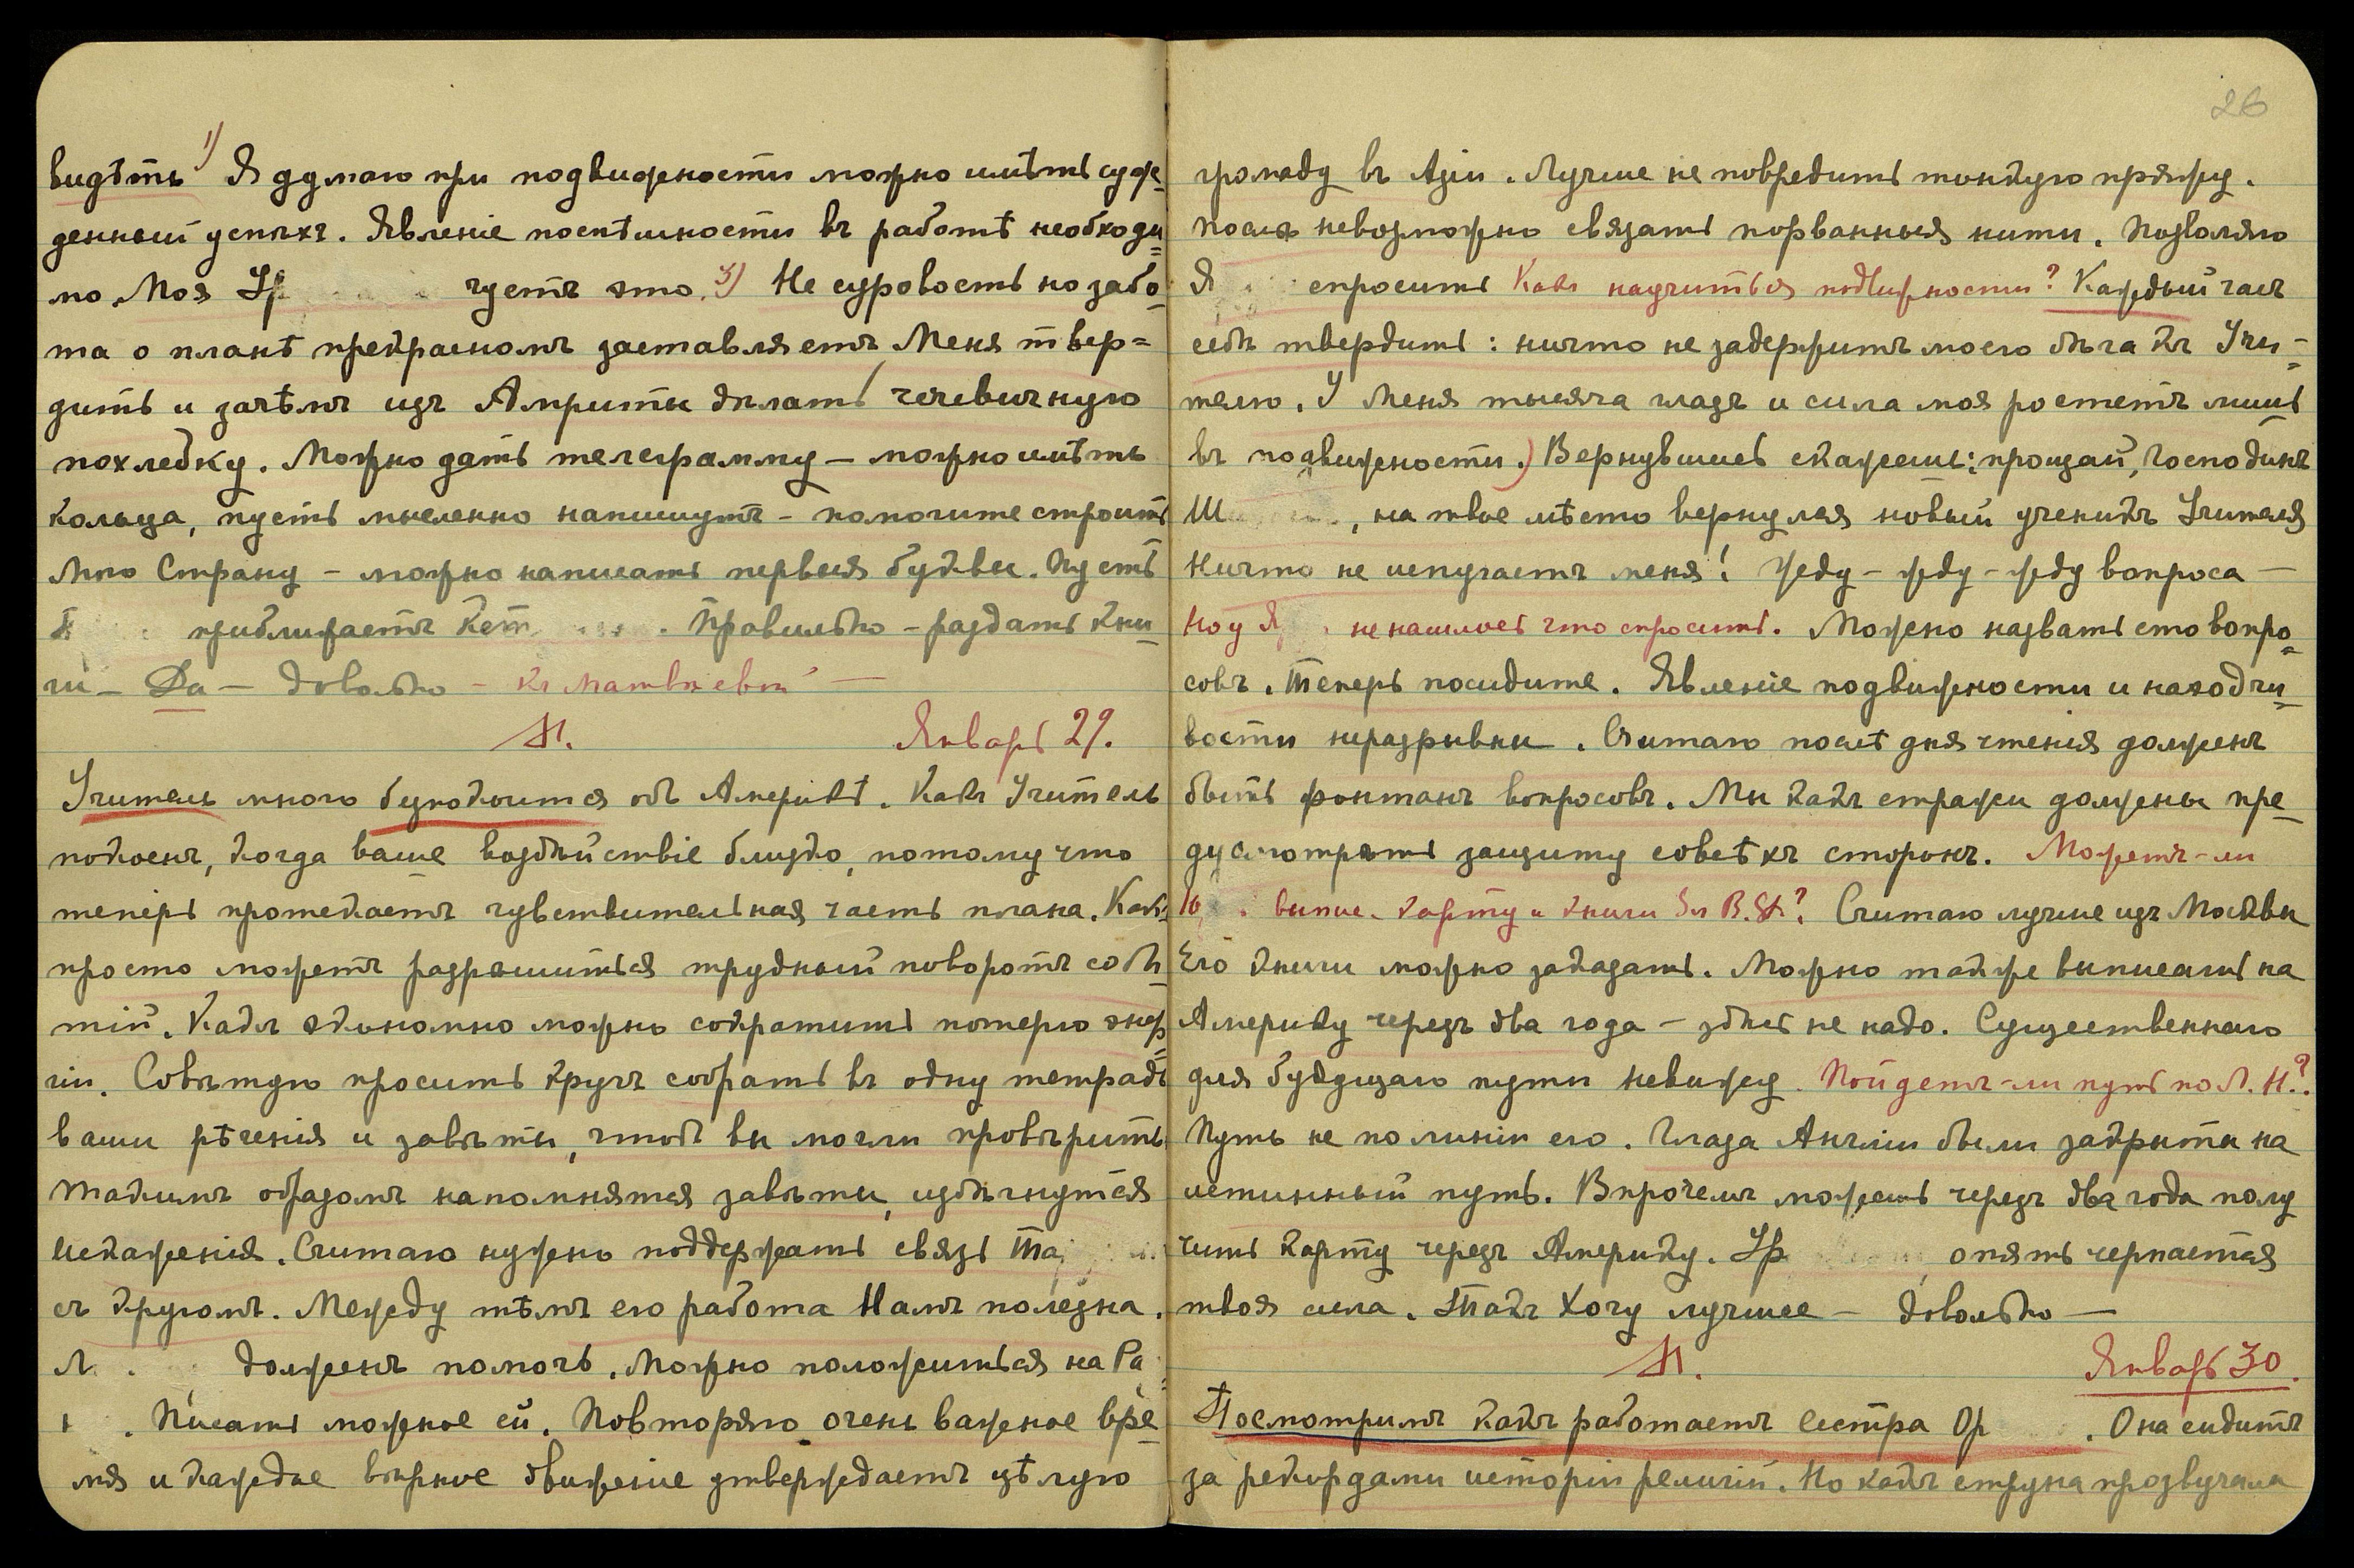 видѣть 1) Я думаю при подвижности можно имѣть суж-
денный успѣхъ. Явленіе поспѣшности въ работѣ необходи=
мо. Моя Ур чуетъ это. 3) Не суровость но забо-
та о планѣ прекрасномъ заставляетъ Меня твер=
дить и зачѣмъ изъ Амриты дѣлать чечевичную
похлебку. Можно дать телеграмму – можно имѣть
кольца, пусть мысленно напишутъ – помогите строить
Мою Страну – можно написать первыя буквы. Пусть
приближаетъ Кет . Правильно – раздать кни-
ги – Да – довольно – къ Матвѣевой –
Январь 29.
Учитель много безпокоится объ Америкѣ. Какъ Учитель
покоенъ, когда ваше воздѣйствіе близко, потому что
теперь протекаетъ чувствительная часть плана. Какъ
просто можетъ разрѣшиться трудный поворотъ собы-
тій. Какъ экономно можно сократить потерю энер=
гіи. Совѣтую просить кругъ собрать въ одну тетрадь
ваши рѣченія и завѣты, чтобъ вы могли провѣрить
Такимъ образомъ напомнятся завѣты, избѣгнутся
Искаженія. Считаю нужно поддержать связь Та
съ кругомъ. Между тѣмъ его работа Намъ полезна.
Л. долженъ помочь. Можно положиться на Ра-
. Писать можно ей. Повторяю очень важное вре-
мя и каждое вѣрное движеніе утверждаетъ цѣлую
26
громаду въ Азіи. Лучше не повредить тонкую пряжу.
Послѣ невозможно связать порванныя нити. Позволяю
Я спросить Какъ научиться подвижности? Каждый часъ
себѣ твердить: ничто не задержитъ моего бѣга къ Учи=
телю. У Меня тысяча глазъ и сила моя ростетъ лишь
въ подвижности.) Вернувшись скажешь: прощай, Господинъ
Ш , на твое мѣсто вернулся новый ученикъ Учителя
Ничто не испугаетъ меня! Жду – жду – жду вопроса –
Но у Я не нашлось что спросить. Можно назвать сто вопро=
совъ. Теперь посидите. Явленіе подвижности и находчи=
вости неразрывны. Считаю послѣ дня чтенія долженъ
быть фонтанъ вопросовъ. Мы какъ стражи должны пре-
дусмотрѣть защиту со всѣхъ сторонъ. Можетъ-ли
Ю. выпис. карту и книги Вл В.? Считаю лучше изъ Москвы
Его книги можно заказать. Можно также выписать на
Америку черезъ два года – здѣсь не надо. Существеннаго
для будущаго пути не вижу. Пойдетъ-ли путь по Л. Н.?
Путь не по линіи его. Глаза Англіи были закрыты на
истинный путь. Впрочемъ можешь черезъ два года полу
чить карту черезъ Америку. Ур опять черпается
твоя сила. Такъ Хочу лучшее – довольно –
Январь 30.
Посмотримъ какъ работаетъ сестра Ор . Она сидитъ
за рекордами исторіи религій. Но какъ струна прозвучала